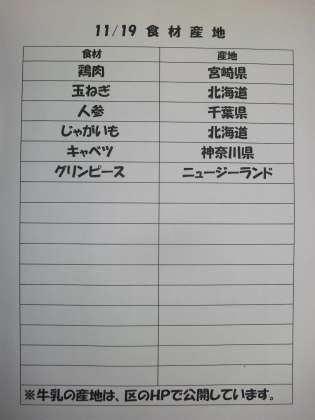 11/19 食材産地
食材 産地
鶏肉 宮崎県
玉ねぎ 北海道
人参 千葉県
じゃがいも 北海道
キャベツ 神奈川県
グリンピース ニュージーランド
※牛乳の産地は、区のHPで公開しています。